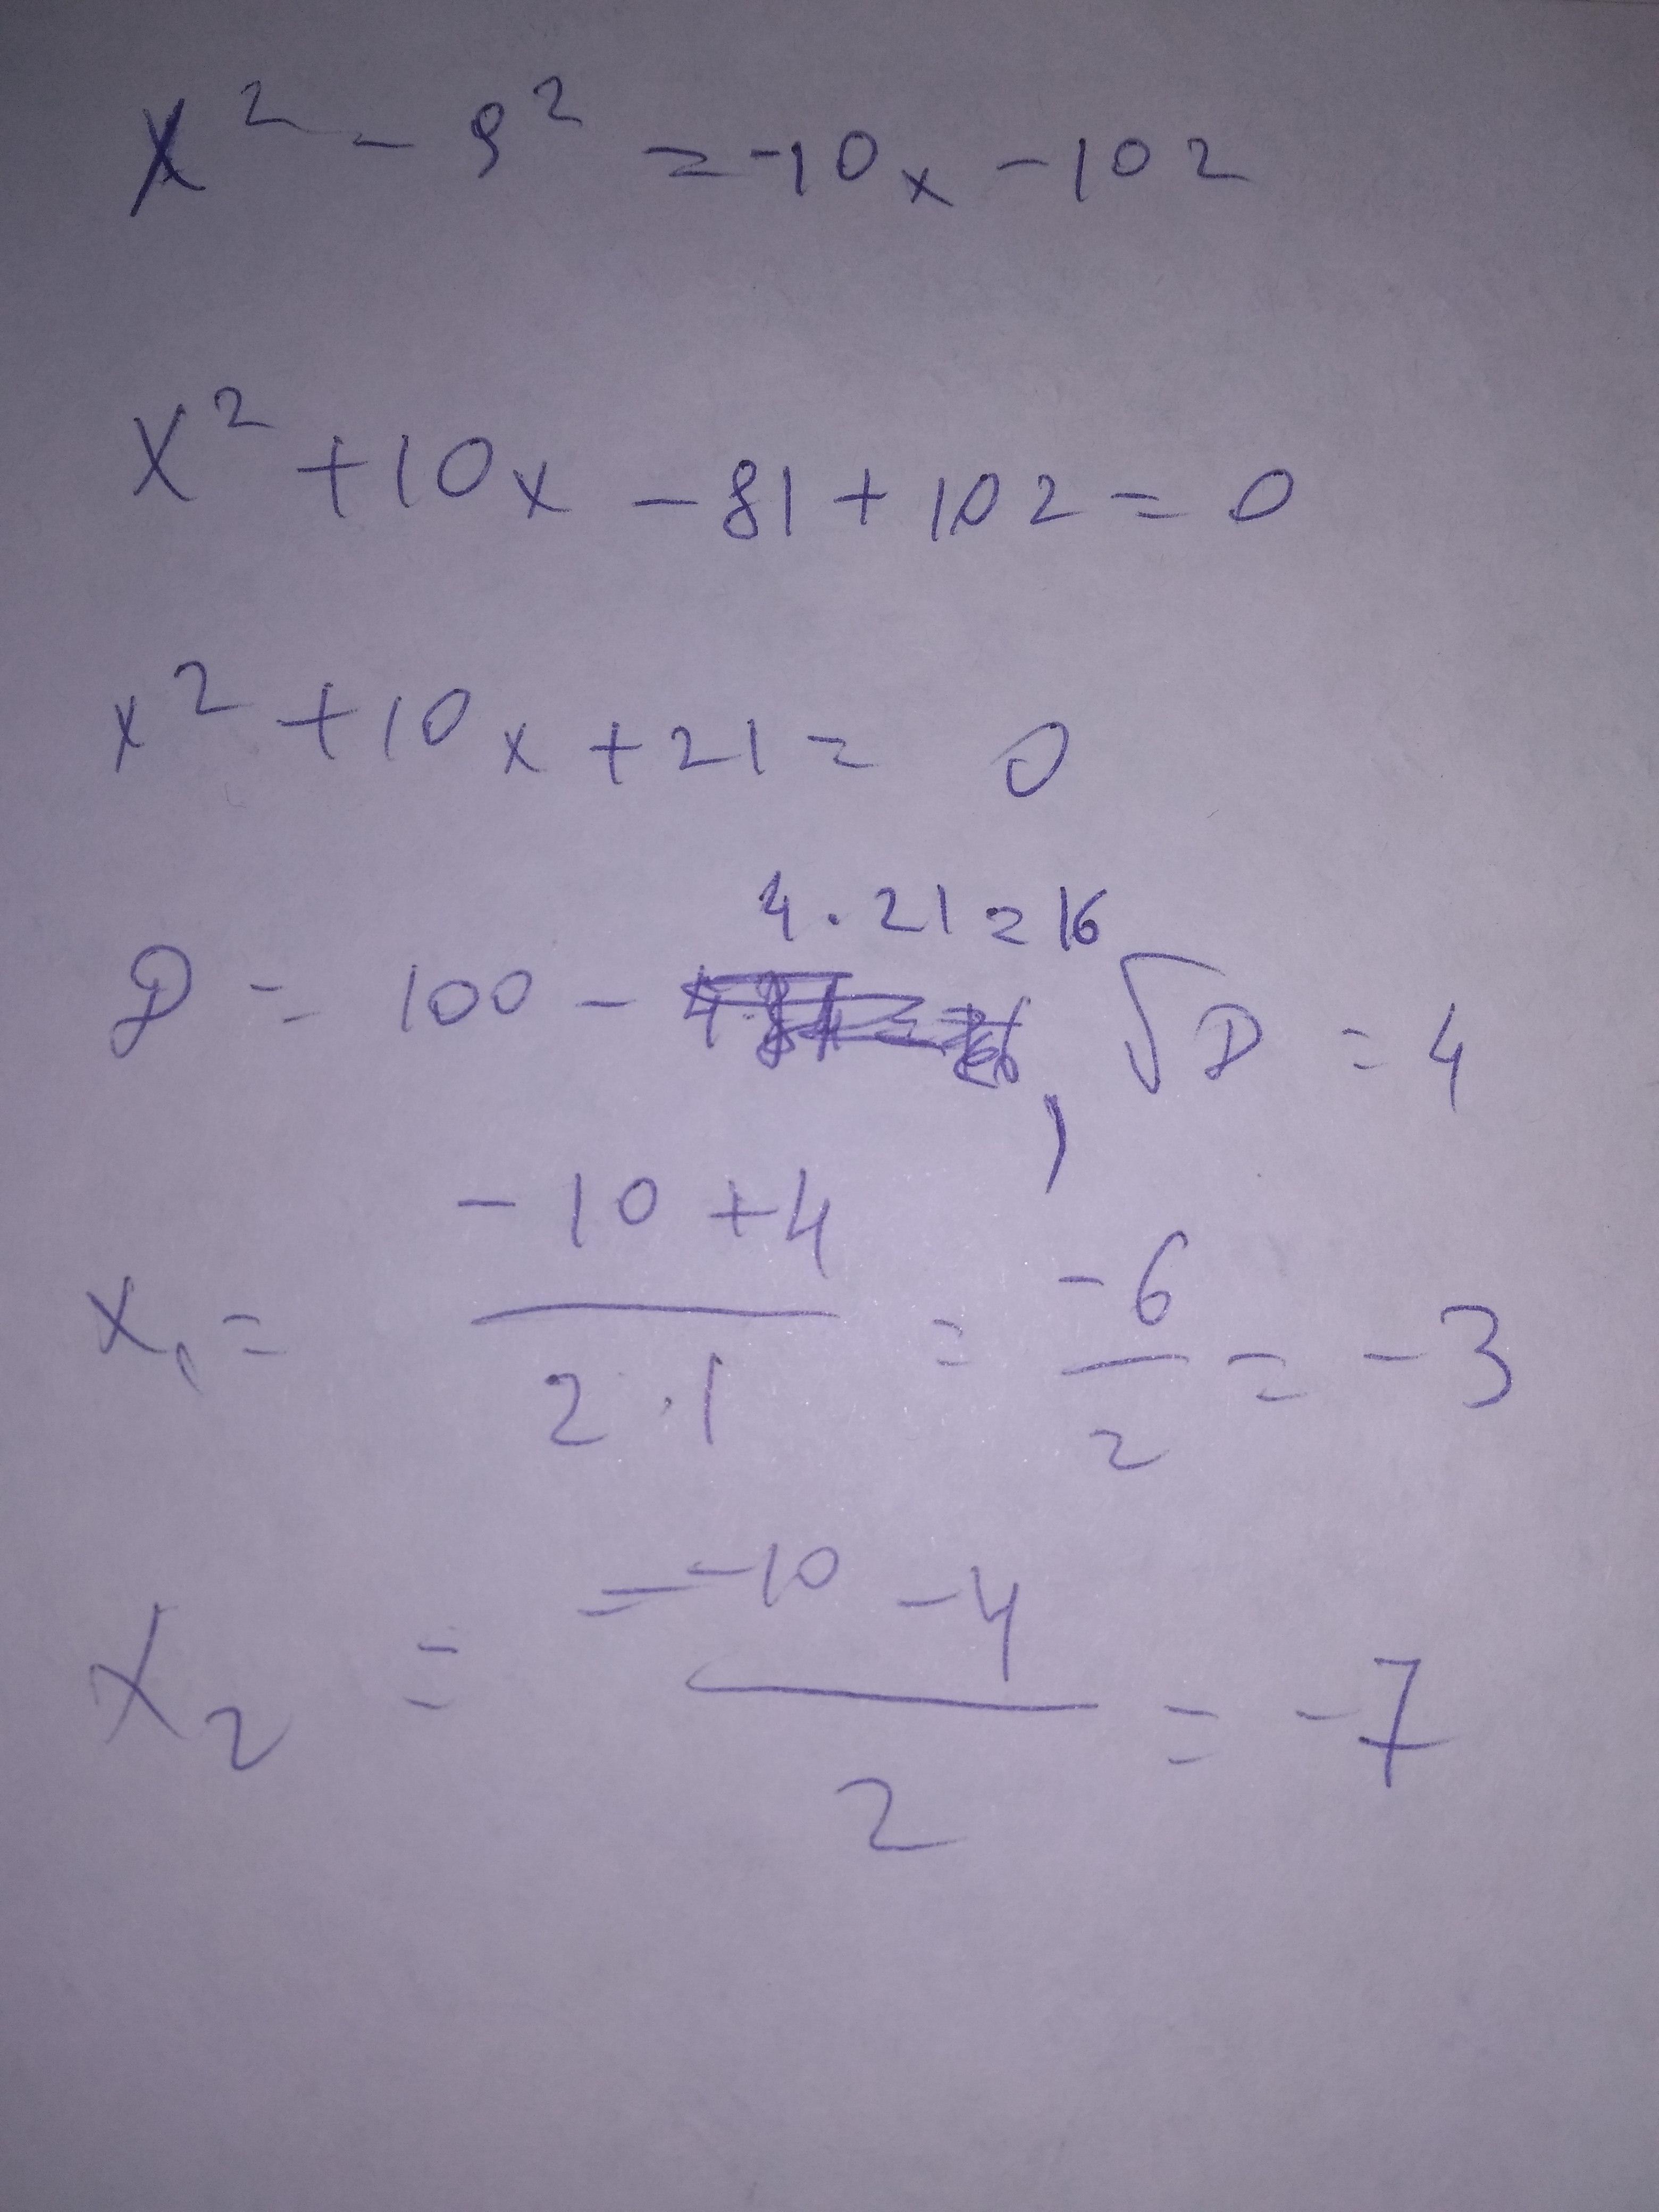 x² - 9² = -10x - 102
x² + 10x - 81 + 102 = 0
x² + 10x + 21 = 0
D = 100 - 4·21 = 16, √D = 4
x₁ = (-10 + 4)/(2·1) = -6/2 = -3
x₂ = = (-10 - 4)/2 = -7